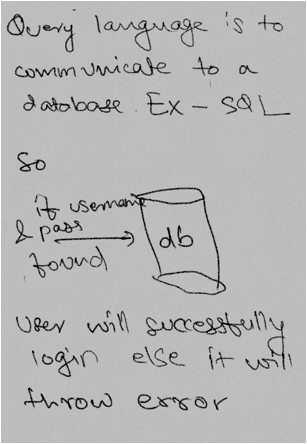 Query language is to
communicate to a
database. Ex - SQL
So
if username
& pass
found
db
User will successfully
login else it will
throw error